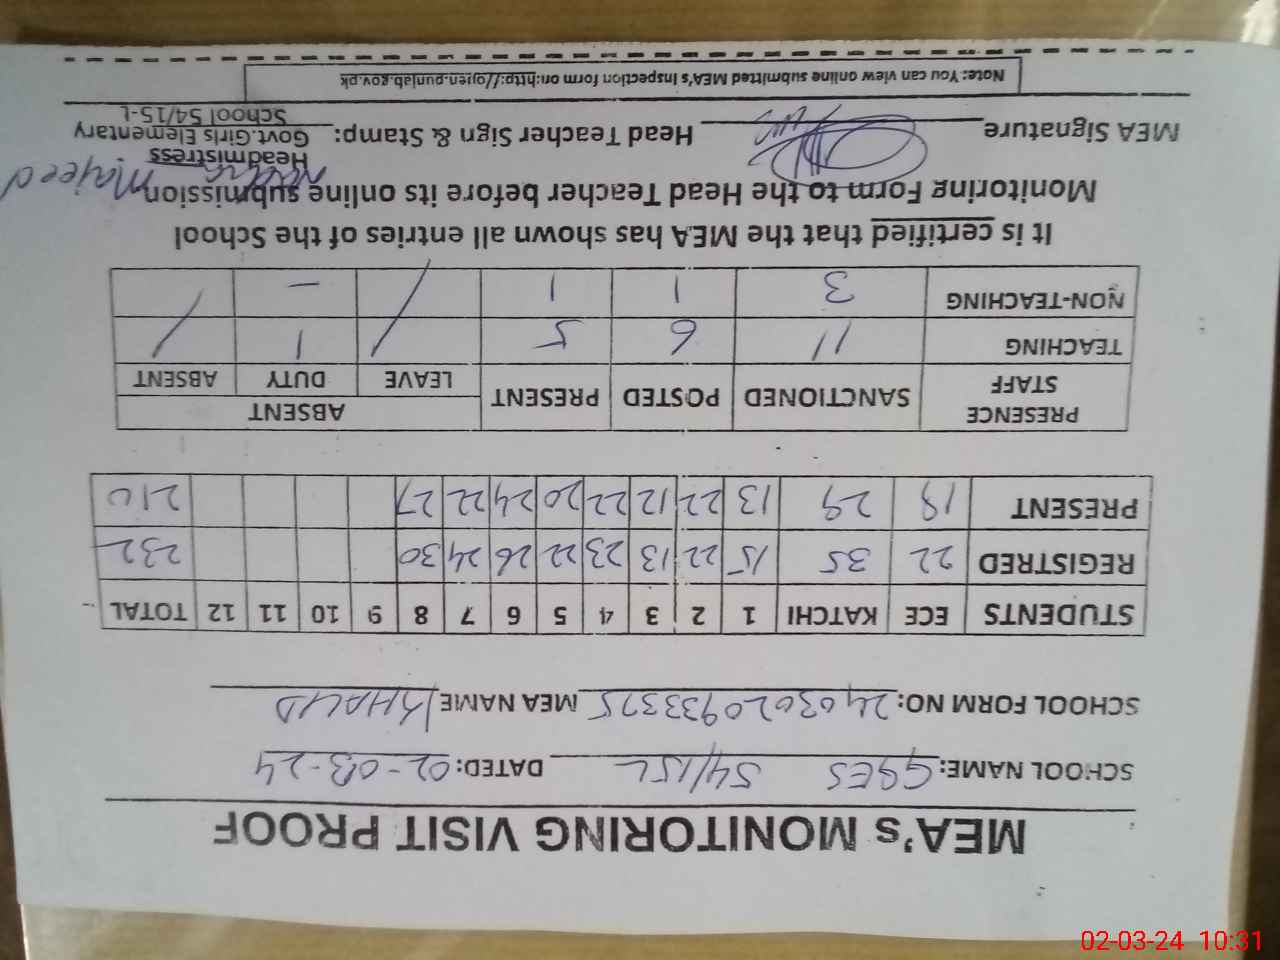 MEA's MONITORING VISIT PROOF
SCHOOL NAME: GGES 54/15L DATED: 02-03-24
SCHOOL FORM NO: 2403020933375 MEA NAME KHALID
STUDENTS ECE KATCHI 1 2 3 4 5 6 7 8 9 10 11 12 TOTAL
REGISTRED 22 35 15 22 13 23 22 26 24 30 232
PRESENT 18 29 13 22 12 22 20 24 22 27 210
PRESENCE STAFF SANCTIONED POSTED PRESENT ABSENT
LEAVE DUTY ABSENT
TEACHING 11 6 5 / 1 /
NON-TEACHING 3 1 1 / -
It is certified that the MEA has shown all entries of the School
Monitoring Form to the Head Teacher before its online submission
Majeed
MEA Signature Head Teacher Sign & Stamp:
Headmistress
Govt.Girls Elementary
School 54/15-L
Note: You can view online submitted MEA's inspection form on:http://open.punjab.gov.pk
02-03-24 10:31